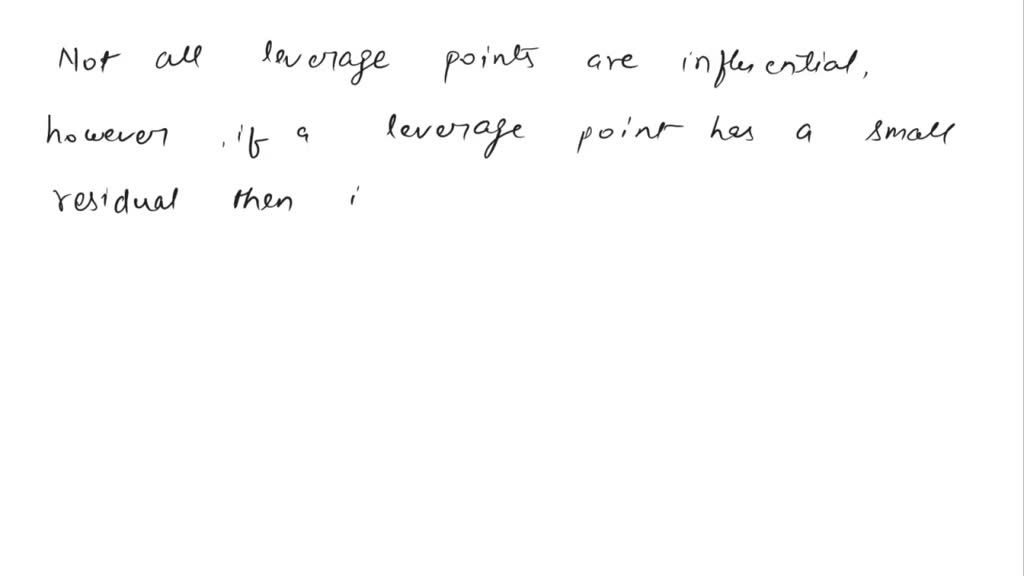 Not all leverage points are influential,
however, if a leverage point has a small
residual then i